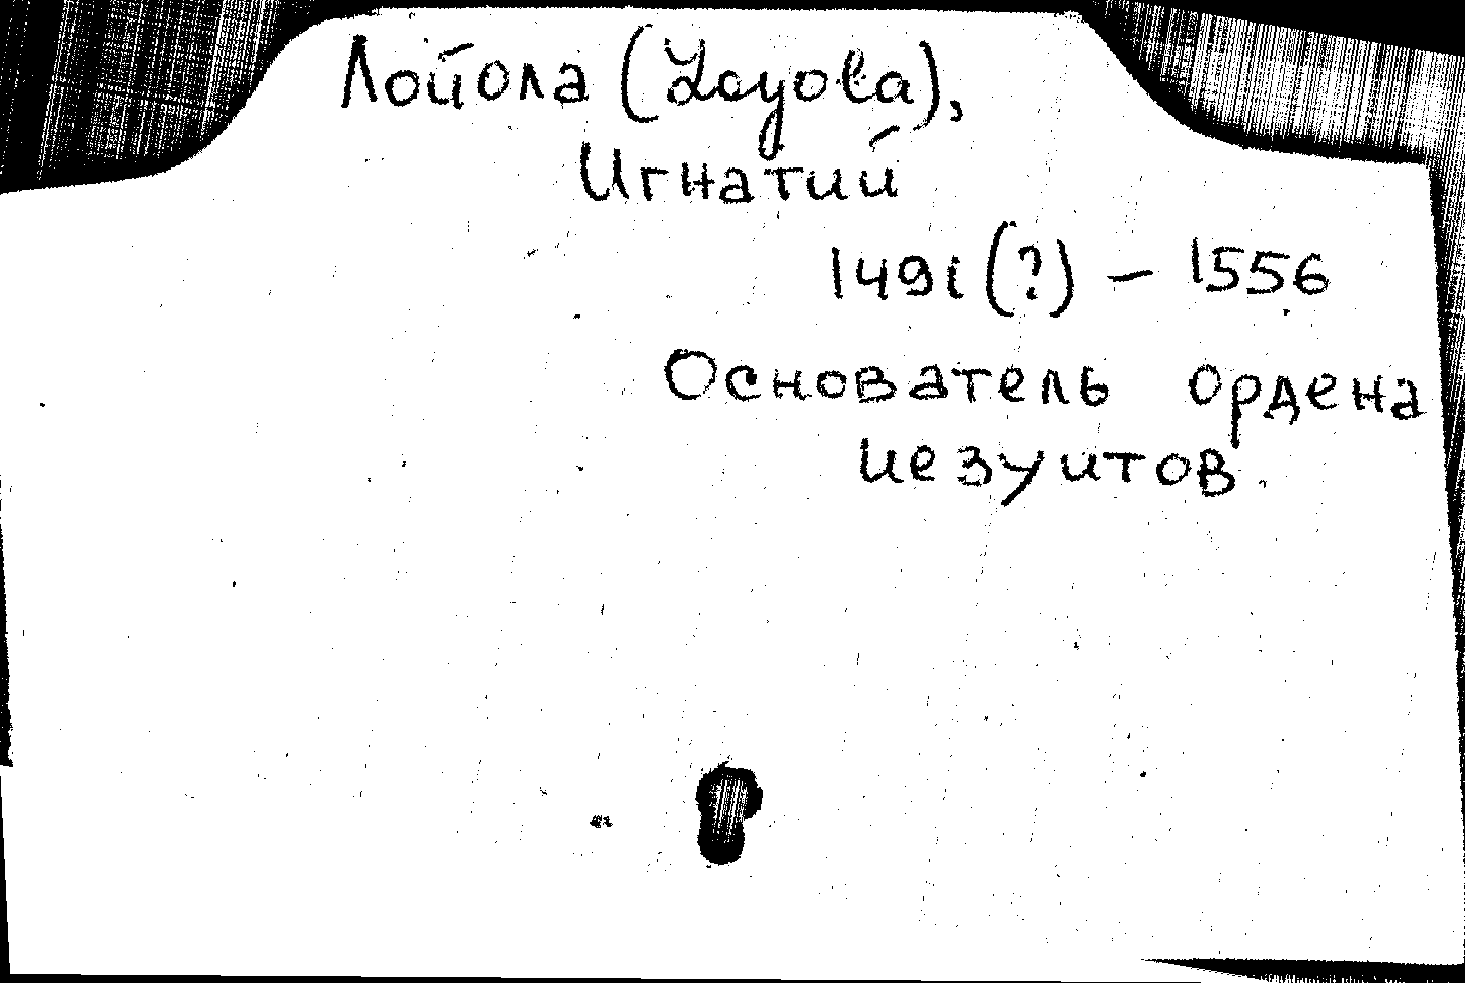 Лойола (Loyola),
Игнатий
1491(?) – 1556
Основатель ордена
иезуитов